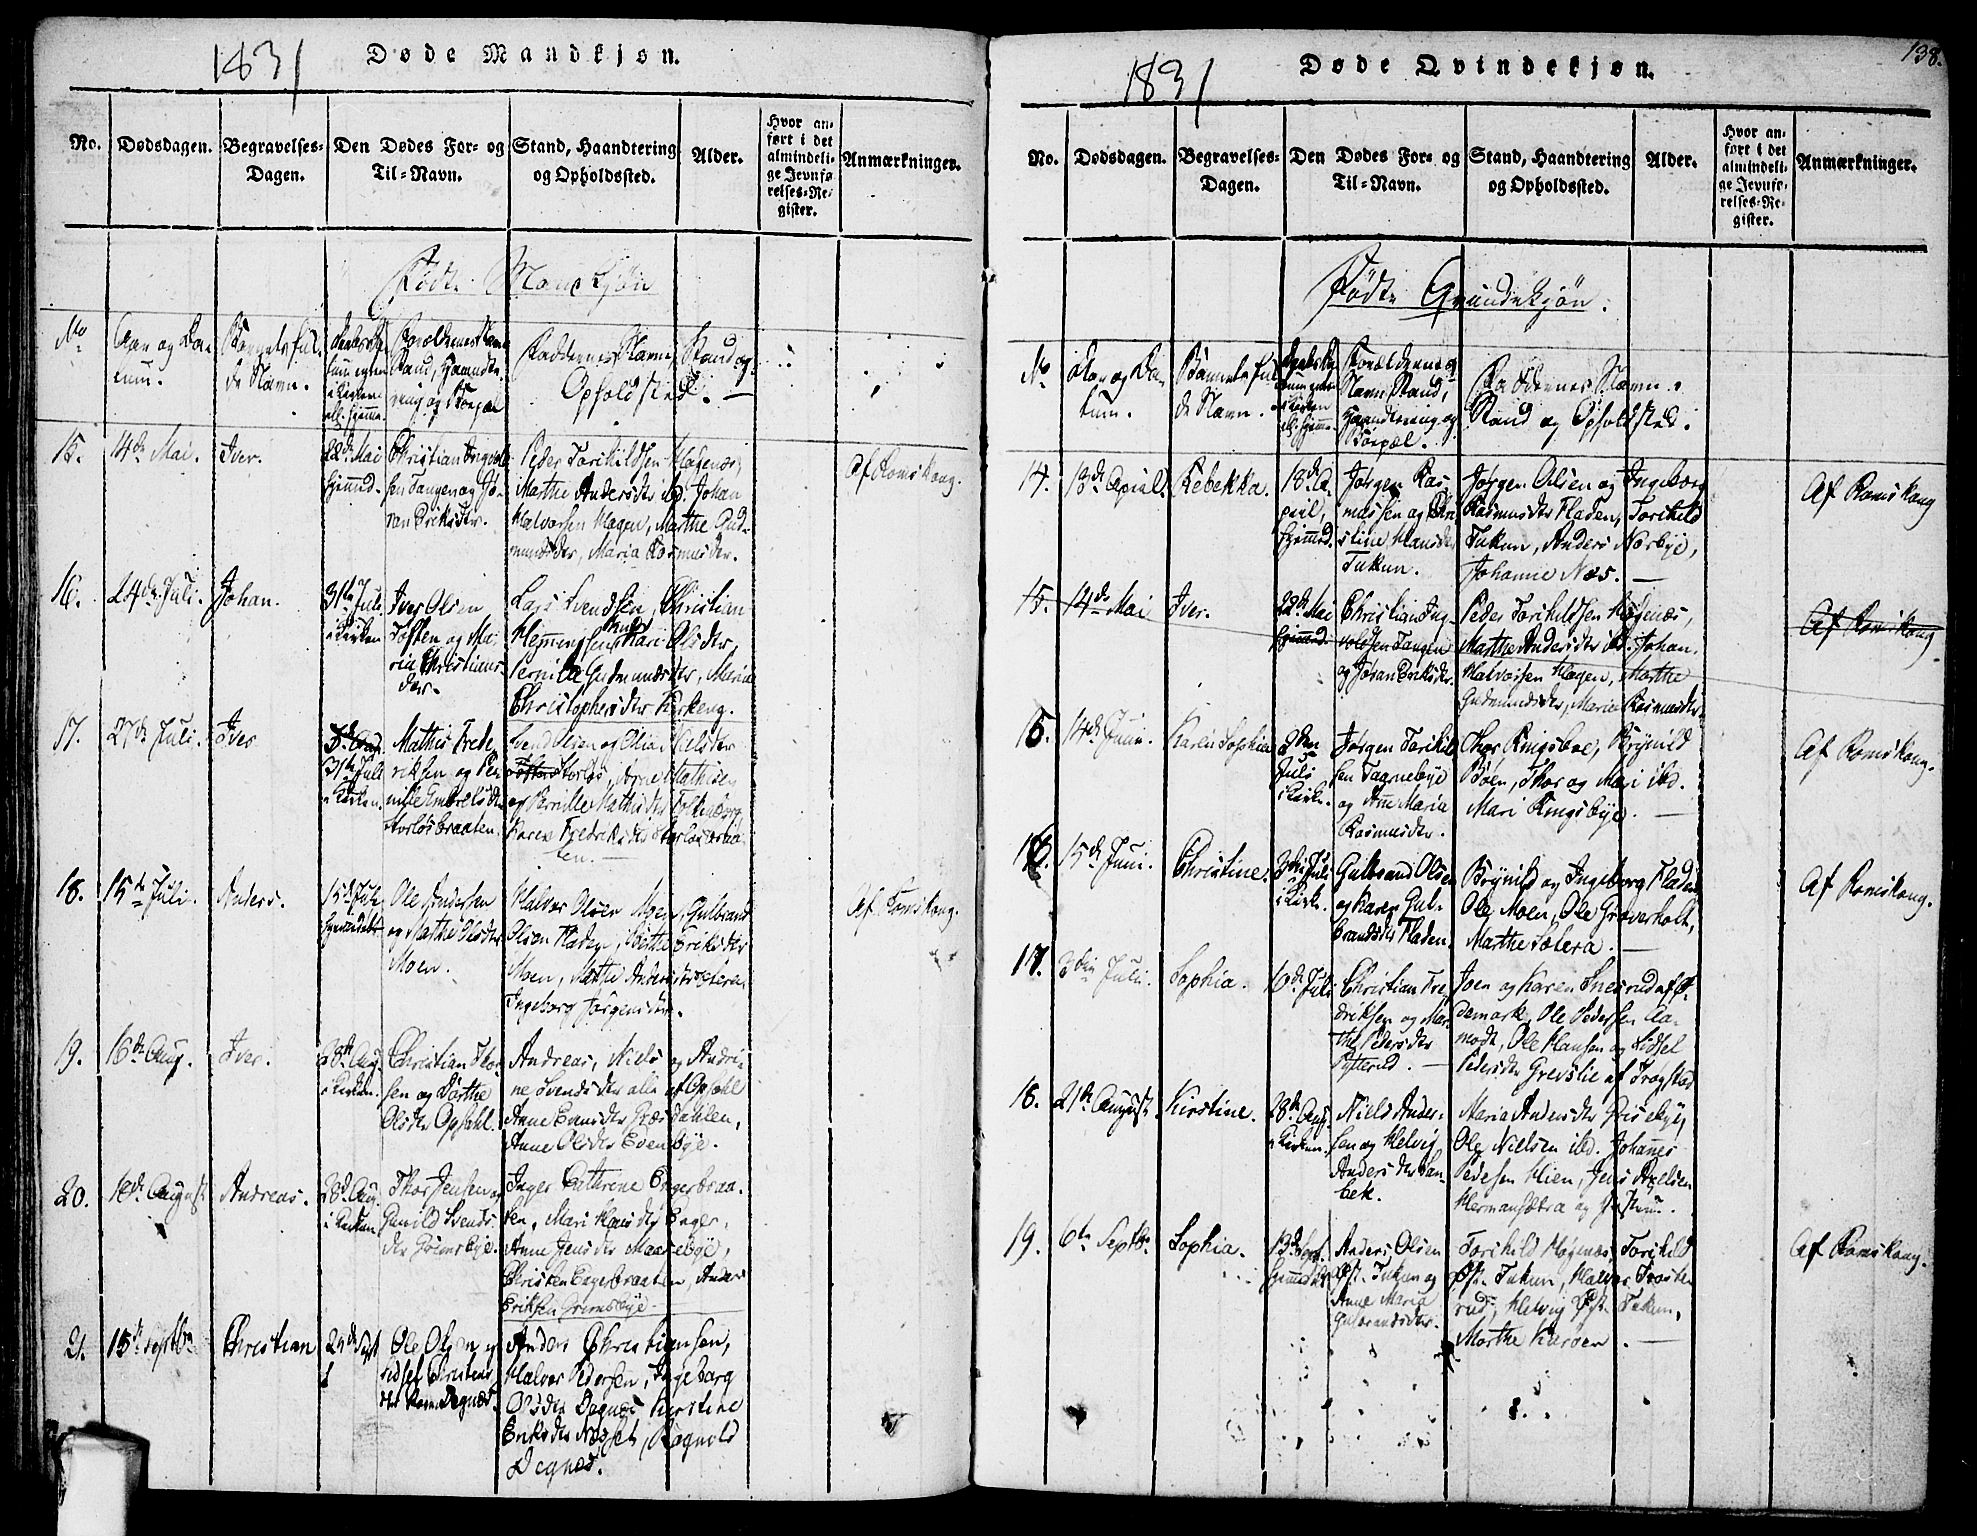 1831
Døde Mandkjøn.
No.
Dødsdagen.
Begravelses-
Dagen.
Den Dødes For- og
Til-Navn.
Stand, Haandtering
og Opholdssted.
Alder.
Hvor an-
ført i det
almindeli-
ge Jevnfø-
relses-Re-
gister.
Anmærkninger.
Fødte Mandkjön
No
Aar og Da-
tum.
Barnets ful-
de Navn.
Forældrenes Navn
Stand, Haandte-
ring og Bopæl
Faddernes Navn, Stand og
Opholdsted.
15.
14de Mai.
Iver.
22de Mai
hjemmed.
Christian Ingvold-
sen Tangen og Jø-
ran Eriksdtr.
Peder Torkildsen Hagenæs,
Marthe Andersdtr ibd. Johan
Halvorsen Hagen, Marthe Gud-
mundsdtr, Maria Rasmusdtr.
Af Romskoug.
16.
24de Juli.
Johan.
31te Juli
i Kirken
Iver Olsen
Toften og Ma-
ria Christians-
dtr.
Lars Svendsen, Christian
Hemmingsen, Mari Olsdtr,
Pernille Gudmundsdtr, Maria
Christophersdtr Kirkeng.
17.
27de Juli.
Iver
31te Juli
i Kirken.
Mathis Frede-
riksen og Per-
nille Embretsdtr
Storlösbraaten.
Svend Olsen og Olia Nielsdtr
Storløs, Arne Mathisen
og Pernille Mathisdtr
Karen Fredriksdtr Storlösbraa-
ten.
18.
15de Juli.
Anders.
15de Juli
hjemmedøbt
Ole Andersen
og Marthe Olsdtr
Moen.
Halvor Olsen Moen, Gulbrand
Olsen Fladen, Berthe Eriksdtr
Moen, Marthe Andersdtr
Ingeborg Jørgensdtr.
Af Romskoug.
19.
16de Aug.
Iver.
28de Aug.
i Kirken.
Christian Thor-
sen og Dorthe
Olsdtr Opsahl.
Andreas, Niels og Andri-
ne Svendsdtr alle af Opsahl
Anne Evensdtr Græsdahlen,
Anne Olsdtr Evenbye.
20.
August
Andreas.
28de Aug.
i Kirken
Thor Jensen og
Gunild Svends-
dtr Grimsbye.
Inger Cathrine Engerbraa-
ten, Mari Hansdtr Enger,
Anne Jensdtr Maasebye,
Christen Engerbraaten, Anders
Eriksen Grimsbye
21.
15de Septbr
Christian
Ole Olsen og
Sidsel Christens-
dtr Degnæs.
Anders Christiansen,
Halvor Pedersen, Ingeborg
Olsdtr Degnæs, Kirstine
Eriksdtr Næsset, Ragnild
Degnæs.
138.
1831
Døde Qvindekjøn.
No.
Dødsdagen.
Begravelses-
Dagen.
Den Dødes For- og
Til-Navn.
Stand, Haandtering
og Opholdssted.
Alder.
Hvor an-
ført i det
almindeli-
ge Jevnfø-
relses-Re-
gister.
Anmærkninger.
Fødte Qvindekjön.
No
Aar og Da-
tum.
Barnets ful-
de Navn.
Forældrenes
Navn, Stand,
Haandtering og
Bopæl.
Faddernes Navn,
Stand og Opholdsted.
14.
13de April.
Rebekka.
18de A-
pril,
hjemmed.
Jørgen Ras-
mussen og Chri-
stine Hansdtr
Tukun.
Jørgen Olsen og Ingeborg
Rasmusdtr Fladen, Torkild
Tukun, Anders Norbye,
Johanne Næs.
Af Romskoug
15.
14de Mai
Iver.
22de Mai
hjemmed.
Christian Ing-
voldsen Tangen
og Jøran Eriksdtr.
Peder Torkildsen Hagenæs,
Marthe Andersdtr ibd. Johan
Halvorsen Hagen, Marthe
Gudmundsdtr, Maria Rasmusdtr
Af Romskoug
15.
14de Juni.
Karen Sophia
3die
Juli
i Kirke.
Jørgen Torkil-
sen Taarnebye
og Anne Maria
Rasmusdtr.
Thor Kingsboe, Brynild
Böen, Thor og Mari ibd.
Mari Kingsbye.
Af Romskoug.
16.
15de Juni.
Christine.
3die Juli
i Kirke.
Gulbrand Olsen
og Karen Gul-
brandsdtr Fladen.
Brynild og Ingeborg Fladen
Ole Moen, Ole Graverholt,
Marthe Sælera.
Af Romskoug.
17.
3die Juli.
Sophia.
10de Juli
Christian Fre-
driksen og Mar-
the Pedersdtr
Joen og Karen Snesrud af Ø-
demark, Ole Pedersen Aa-
modt, Ole Hansen og Sidsel
Pedersdtr Grevslie af Trøgstad
18.
21de August.
Kirstine.
28de Aug.
i Kirken.
Niels Ander-
sen og Helvig
Andersdtr
bek.
Maria Andersdtr Grisebye,
Ole Nielsen ibd. Johannes
Pedersen Hien, Jens Axelsen
Hermansætra og Hustru.
19.
6te Septbr
Sophia.
13de Sept.
hjemmedøbt
Anders Olsen
Øst. Tukun og
Anne Maria
Gulbrandsdtr.
Torkild Hagenæs, Torkild
Øst. Tukun, Halvor Troste-
rud, Helvig Øst. Tukun,
Marthe Karoen.
Af Romskoug.